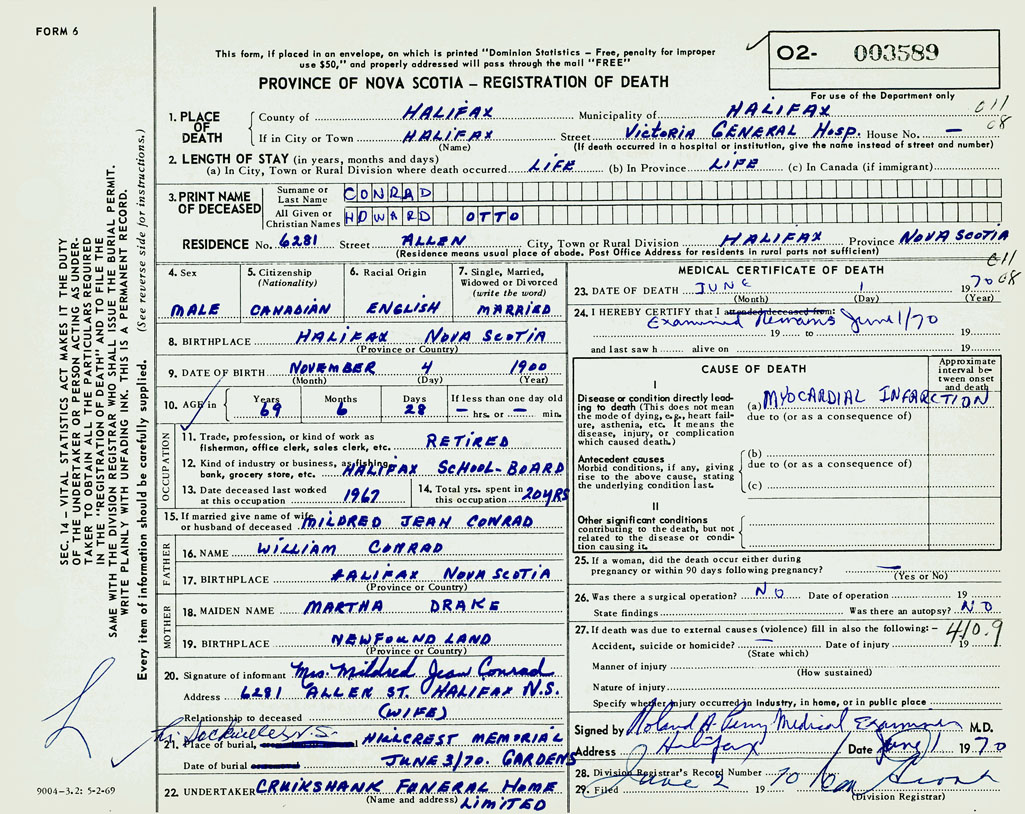 FORM 6
This form, if placed in an envelope, on which is printed "Dominion Statistics – Free, penalty for improper
use $50," and properly addressed will pass through the mail "FREE"
PROVINCE OF NOVA SCOTIA – REGISTRATION OF DEATH
02- 003589
For use of the Department only
011
08
1. PLACE OF DEATH
County of HALIFAX Municipality of HALIFAX
If in City or Town HALIFAX Street Victoria GENERAL Hosp. House No. —
(Name) (If death occurred in a hospital or institution, give the name instead of street and number)
2. LENGTH OF STAY (in years, months and days)
(a) In City, Town or Rural Division where death occurred LIFE (b) In Province LIFE (c) In Canada (if immigrant)
3. PRINT NAME OF DECEASED
Surname or Last Name CONRAD
All Given or Christian Names HOWARD OTTO
RESIDENCE No. 6281 Street ALLEN City, Town or Rural Division HALIFAX Province NOVA SCOTIA
(Residence means usual place of abode. Post Office Address for residents in rural parts not sufficient)
011
08
4. Sex
MALE
5. Citizenship
(Nationality)
CANADIAN
6. Racial Origin
ENGLISH
7. Single, Married,
Widowed or Divorced
(write the word)
MARRIED
8. BIRTHPLACE HALIFAX NOVA SCOTIA
(Province or Country)
9. DATE OF BIRTH NOVEMBER 4 1900
(Month) (Day) (Year)
10. AGE in
Years Months Days If less than one day old
69 6 28 — hrs. or — min.
OCCUPATION
11. Trade, profession, or kind of work as
fisherman, office clerk, sales clerk, etc. RETIRED
12. Kind of industry or business, as fishing,
bank, grocery store, etc. HALIFAX SCHOOL-BOARD
13. Date deceased last worked
at this occupation 1967
14. Total yrs. spent in
this occupation 20YRS
15. If married give name of wife
or husband of deceased MILDRED JEAN CONRAD
FATHER
16. NAME WILLIAM CONRAD
17. BIRTHPLACE HALIFAX NOVA SCOTIA
(Province or Country)
MOTHER
18. MAIDEN NAME MARTHA DRAKE
19. BIRTHPLACE NEWFOUNDLAND
(Province or Country)
20. Signature of informant Mrs. Mildred Jean Conrad
Address 6281 ALLEN ST. HALIFAX N.S.
Relationship to deceased (WIFE)
Sackville N.S.
21. Place of burial, HILLCREST MEMORIAL
Date of burial JUNE 3/70. GARDENS
22. UNDERTAKER CRUIKSHANK FUNERAL HOME
(Name and address) LIMITED
MEDICAL CERTIFICATE OF DEATH
23. DATE OF DEATH JUNE 1 1970
(Month) (Day) (Year)
24. I HEREBY CERTIFY that I attended deceased from:
Examined Remains June 1/70
19 to 19
and last saw h alive on 19
CAUSE OF DEATH
Approximate interval between onset and death
I
Disease or condition directly leading to death (This does not mean the mode of dying, e.g., heart failure, asthenia, etc. It means the disease, injury, or complication which caused death.)
(a) MYOCARDIAL INFARCTION
due to (or as a consequence of)
Antecedent causes
Morbid conditions, if any, giving rise to the above cause, stating the underlying condition last.
(b)
due to (or as a consequence of)
(c)
II
Other significant conditions
contributing to the death, but not related to the disease or condition causing it.
25. If a woman, did the death occur either during
pregnancy or within 90 days following pregnancy? —
(Yes or No)
26. Was there a surgical operation? NO Date of operation 19
State findings Was there an autopsy? NO
27. If death was due to external causes (violence) fill in also the following:– 410.9
Accident, suicide or homicide? — Date of injury 19
(State which)
Manner of injury
(How sustained)
Nature of injury
Specify whether injury occurred in industry, in home, or in public place
Signed by Roland A. Perry Medical Examiner M.D.
Address Halifax Date June 1 1970
28. Division Registrar's Record Number
29. Filed June 2 19 70
(Division Registrar)
SEC. 14 – VITAL STATISTICS ACT MAKES IT THE DUTY
OF THE UNDERTAKER OR PERSON ACTING AS UNDER-
TAKER TO OBTAIN ALL THE PARTICULARS REQUIRED
IN THE "REGISTRATION OF DEATH" AND TO FILE THE
SAME WITH THE DIVISION REGISTRAR WHO SHALL ISSUE THE BURIAL PERMIT.
WRITE PLAINLY WITH UNFADING INK. THIS IS A PERMANENT RECORD.
Every item of information should be carefully supplied. (See reverse side for instructions.)
9004-3.2: 5-2-69